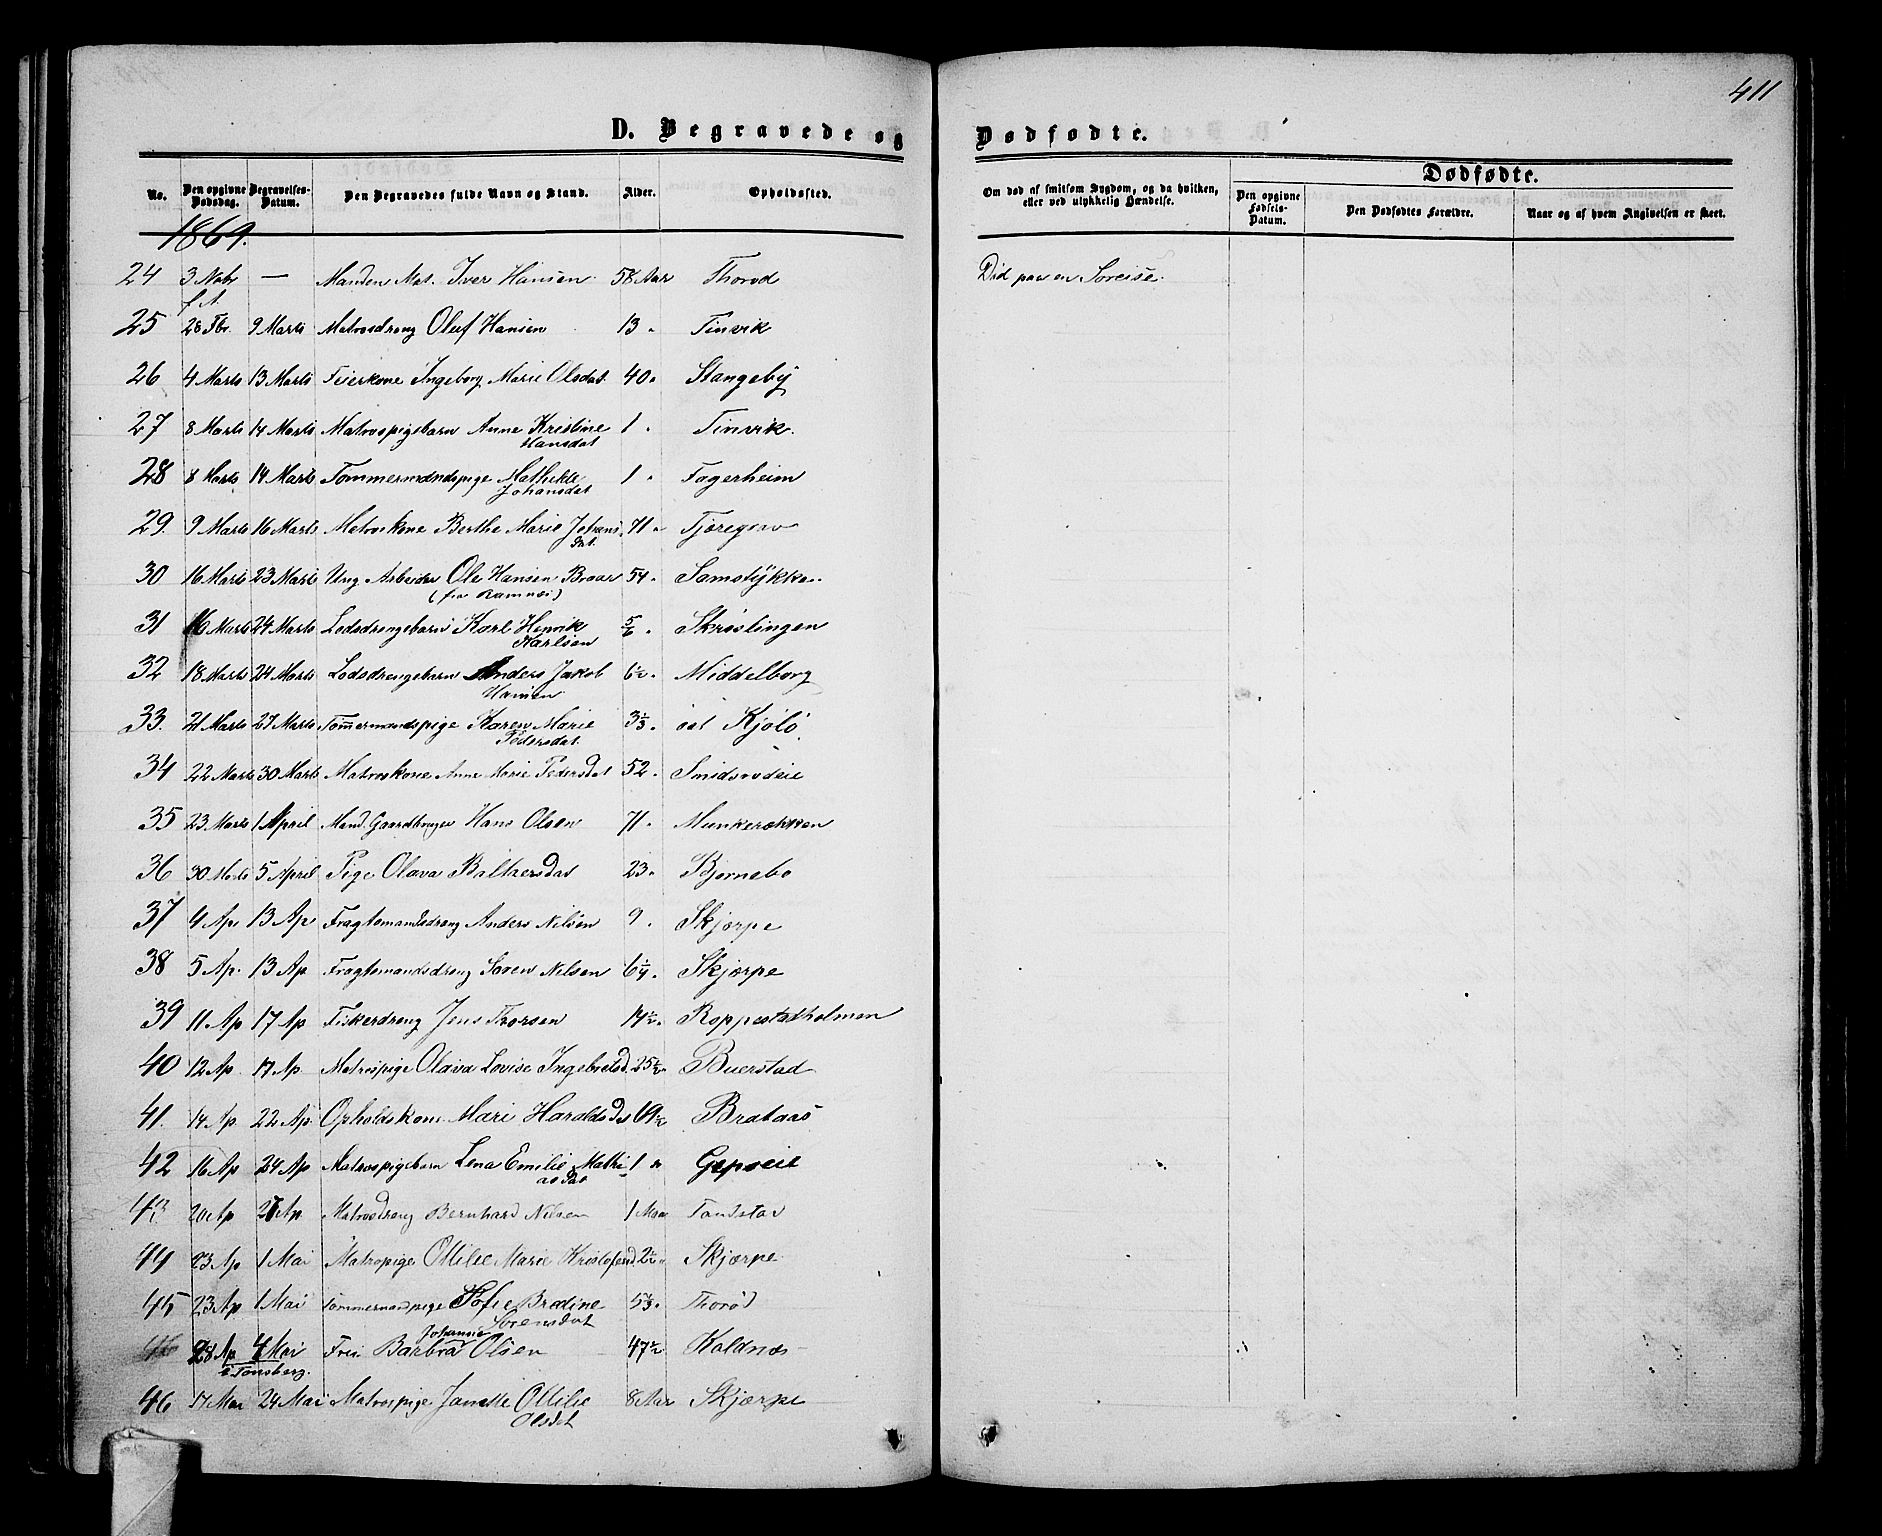 411
D. Begravede og Dødfødte.
No. Den opgivne Dødsdag. Begravelses-Datum. Den Begravedes fulde Navn og Stand. Alder. Opholdssted. Om død af smitsom Sygdom, og da hvilken, eller ved ulykkelig Hændelse. Dødfødte. Den opgivne Fødsels-Datum. Den Dødfødtes Forældre. Naar og af hvem Angivelsen er skeet.
1869.
24 3 Nobr f. A. — Manden Mat. Iver Hansen 58 Aar Thorød Død paa en Søreise.
25 28 Fbr. 9 Marts Matrosdreng Oluf Hansen 13 " Tinvik
26 4 Marts 13 Marts Feierkone Ingeborg Marie Olsdat. 40 " Stangeby
27 8 Marts 14 Marts Matrospigebarn Anne Kristine Hansdat 1 " Tinvik.
28 8 Marts 14 Marts Tømmermandspige Mathilde Johansdat 1 " Fagerheim
29. 9 Marts 16 Marts Matroskone Berthe Marie Johans dat. 71 "
30 16 Marts 23 Marts Ung. Arbeider Ole Hansen Braar 54 " Samstykke
(fra Ramnæs)
31 16 Marts 24 Marts Lodsdrengebarn Karl Henrik Karlsen 5/6 " Skrøslingen
32 18 Marts 24 Marts Lodsdrengebarn Anders Jakob Hansen 6 1/2 " Middelborg
33. 21 Marts 27 Marts Tømmermandspige Karen Marie Pedersdat. 3 1/3 " Kjølö
34 22 Marts 30 Marts Matroskone Anne Marie Pedersdat 52 " Smidsrødeie
35 23 Marts 1 April Mand. Gaardbruger Hans Olsen 71 " Munkerækken
36 30 Marts 5 April Pige Olava Baltsersdat 23 " Bjørnebo
37 4 Ap. 13 Ap Fragtemandsdreng Anders Nilsen 9 " Skjærpe
38 5 Ap. 13 Ap Fragtemandsdreng Søren Nilsen 6 1/4 " Skjærpe
39 11 Ap 17 Ap Fiskerdreng Jens Thorsen 14 1/2 " Roppestadholmen
40 12 Ap. 17 Ap. Matrospige Olava Lovise Ingebretsd. 25 1/2 " Buerstad
41. 14 Ap. 22 Ap. Opholdskone Mari Haraldsdt 69 1/2 Brataas
42 16 Ap 24 Ap Matrospigebarn Lena Emilie Mathi asdat 1 " Gipøeie
43 20 Ap 27 Ap. Matrosdreng Bernhard Nilsen 1 Maa
44 23 Ap 1 Mai Matrospige Ottilie Marie Kristofersd. 2 1/2 " Skjærpe
45 23 Ap 1 Mai Tømmermandspige Sofie Bredine Sørensdat 5 2/3 " Thorød
46 28 Ap 4 Mai Frei. Johannie Barbra Olsen 47 1/2 Kaldnæs
i Tønsberg.
46 17 Mai 24 Mai Matrospige Janette Ottilie Olsdat 8 Aar Skjærpe